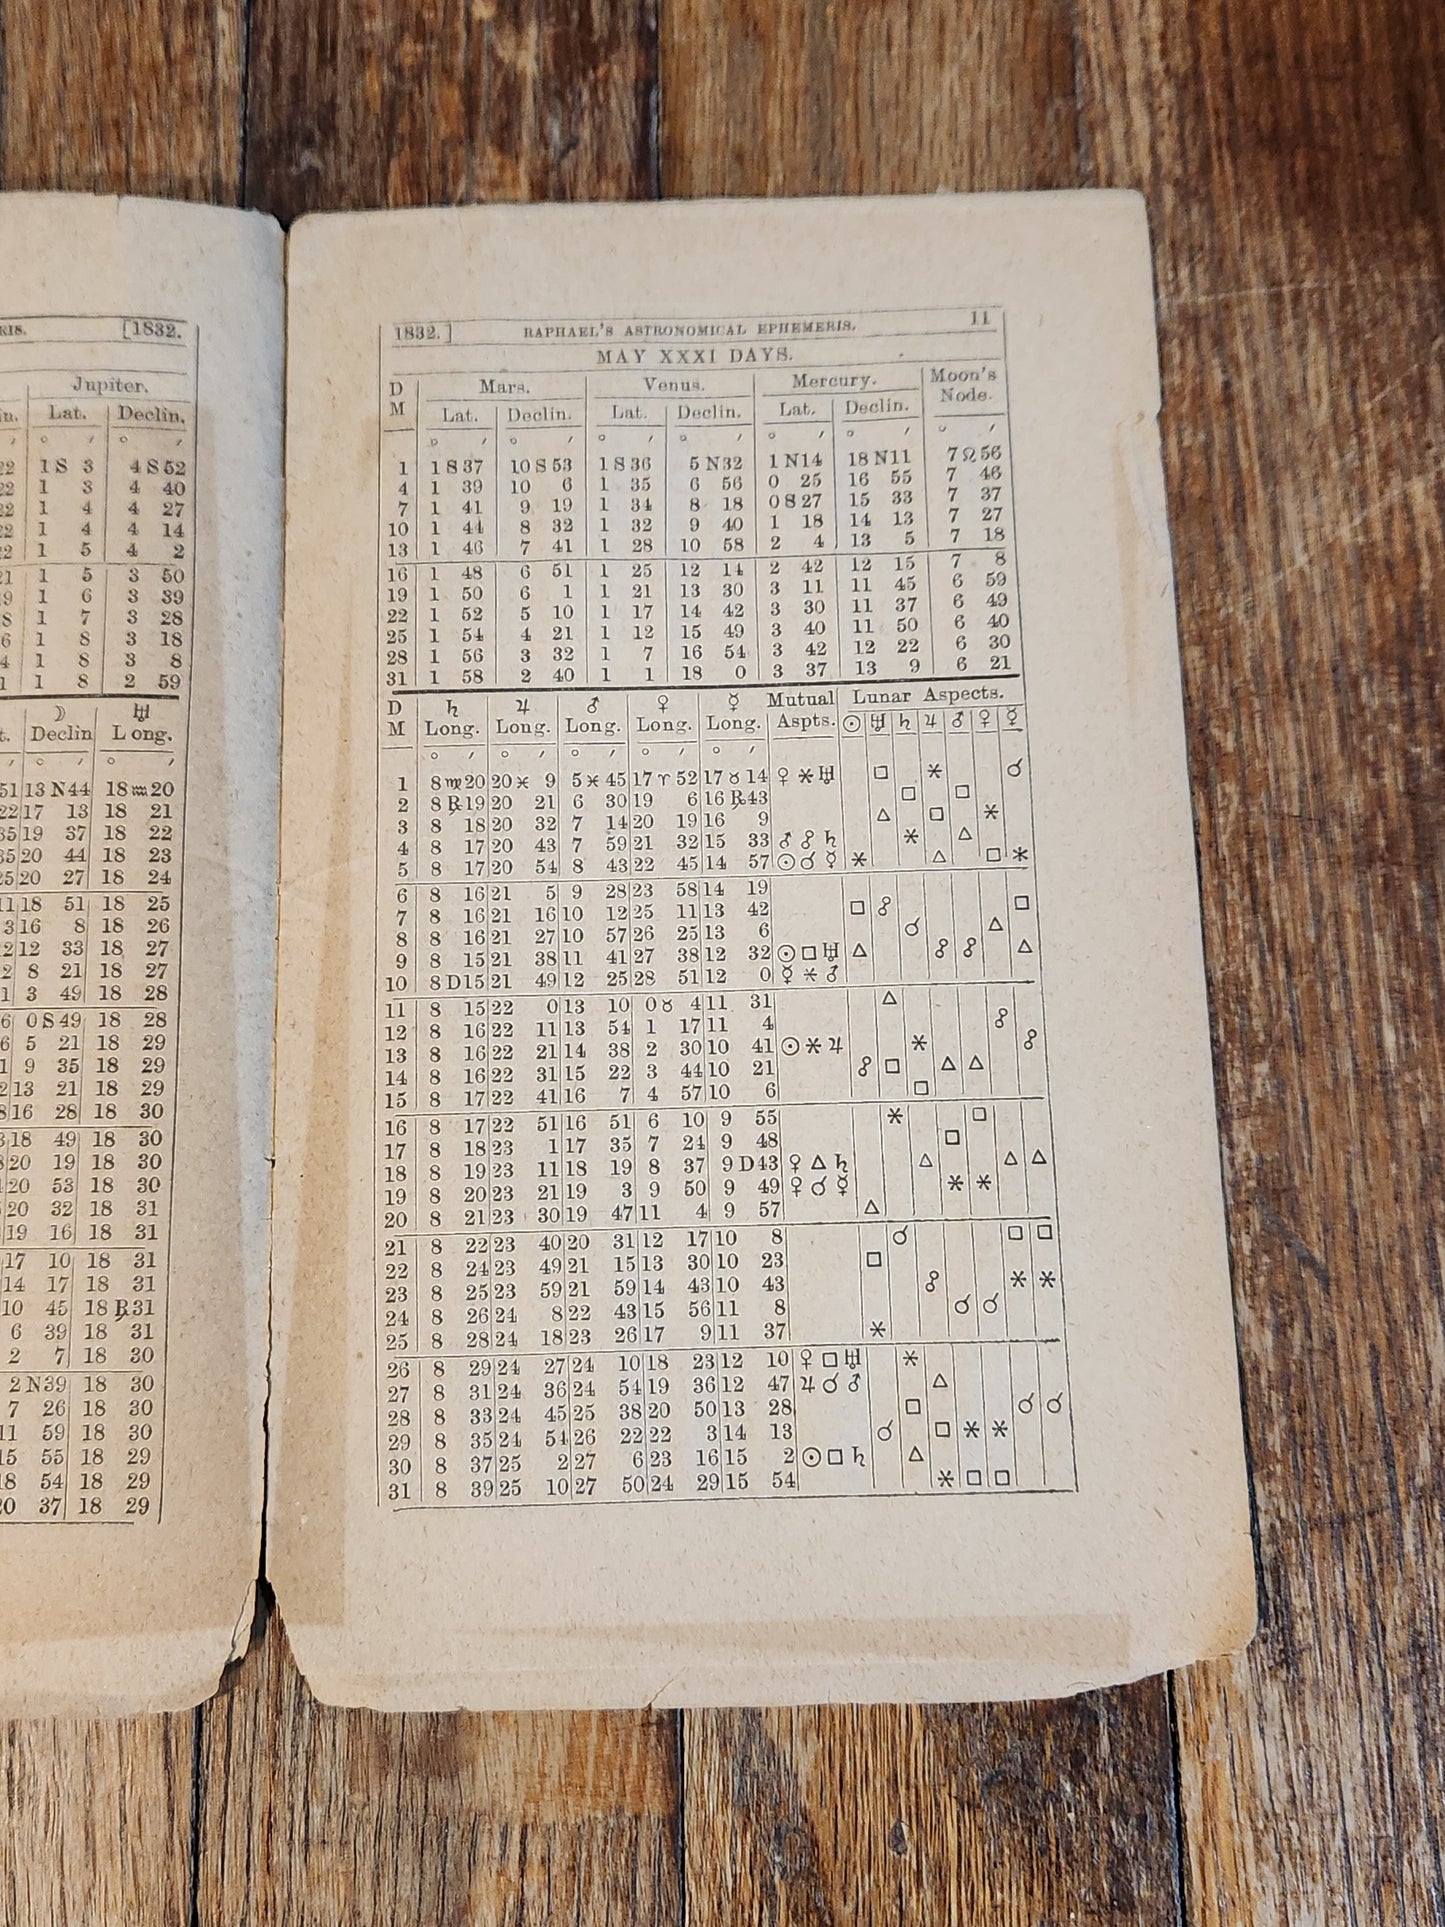 RIS. [1832.
Jupiter.
in. Lat. Declin.
° ′ ° ′
22 1 S 3 4 S 52
22 1 3 4 40
22 1 4 4 27
22 1 4 4 14
22 1 5 4 2
21 1 5 3 50
19 1 6 3 39
8 1 7 3 28
6 1 8 3 18
4 1 8 3 8
1 1 8 2 59
☽ ♅
t. Declin Long.
′ ° ′ ° ′
51 13 N 44 18 ♒ 20
22 17 13 18 21
35 19 37 18 22
35 20 44 18 23
25 20 27 18 24
11 18 51 18 25
3 16 8 18 26
12 12 33 18 27
2 8 21 18 27
1 3 49 18 28
6 0 S 49 18 28
6 5 21 18 29
1 9 35 18 29
2 13 21 18 29
8 16 28 18 30
3 18 49 18 30
8 20 19 18 30
4 20 53 18 30
20 32 18 31
19 16 18 31
17 10 18 31
14 17 18 31
10 45 18 ℞ 31
6 39 18 31
2 7 18 30
2 N 39 18 30
7 26 18 30
11 59 18 30
15 55 18 29
18 54 18 29
20 37 18 29
1832.] RAPHAEL'S ASTRONOMICAL EPHEMERIS. 11
MAY XXXI DAYS.
D M Mars. Venus. Mercury. Moon's Node.
Lat. Declin. Lat. Declin. Lat. Declin.
° ′ ° ′ ° ′ ° ′ ° ′ ° ′ ° ′
1 1 S 37 10 S 53 1 S 36 5 N 32 1 N 14 18 N 11 7 ♌ 56
4 1 39 10 6 1 35 6 56 0 25 16 55 7 46
7 1 41 9 19 1 34 8 18 0 S 27 15 33 7 37
10 1 44 8 32 1 32 9 40 1 18 14 13 7 27
13 1 46 7 41 1 28 10 58 2 4 13 5 7 18
16 1 48 6 51 1 25 12 14 2 42 12 15 7 8
19 1 50 6 1 1 21 13 30 3 11 11 45 6 59
22 1 52 5 10 1 17 14 42 3 30 11 37 6 49
25 1 54 4 21 1 12 15 49 3 40 11 50 6 40
28 1 56 3 32 1 7 16 54 3 42 12 22 6 30
31 1 58 2 40 1 1 18 0 3 37 13 9 6 21
D ♄ ♃ ♂ ♀ ☿ Mutual Lunar Aspects.
M Long. Long. Long. Long. Long. Aspts. ☉ ♅ ♄ ♃ ♂ ♀ ☿
° ′ ° ′ ° ′ ° ′ ° ′
1 8 ♍ 20 20 ♓ 9 5 ♓ 45 17 ♈ 52 17 ♉ 14 ♀ ⚹ ♅ □ ⚹ ☌
2 8 ℞ 19 20 21 6 30 19 6 16 ℞ 43 □ □
3 8 18 20 32 7 14 20 19 16 9 △ □ ⚹
4 8 17 20 43 7 59 21 32 15 33 ♂ ☍ ♄ ⚹ △
5 8 17 20 54 8 43 22 45 14 57 ☉ ☌ ☿ ⚹ △ □ ⚹
6 8 16 21 5 9 28 23 58 14 19
7 8 16 21 16 10 12 25 11 13 42 □ ☍ □
8 8 16 21 27 10 57 26 25 13 6 ☌ △
9 8 15 21 38 11 41 27 38 12 32 ☉ □ ♅ △ ☍ ☍ △
10 8 D 15 21 49 12 25 28 51 12 0 ☿ ⚹ ♂
11 8 15 22 0 13 10 0 ♉ 4 11 31 △
12 8 16 22 11 13 54 1 17 11 4 ☍
13 8 16 22 21 14 38 2 30 10 41 ☉ ⚹ ♃ ⚹ ☍
14 8 16 22 31 15 22 3 44 10 21 ☍ □ △ △
15 8 17 22 41 16 7 4 57 10 6 □
16 8 17 22 51 16 51 6 10 9 55 ⚹ □
17 8 18 23 1 17 35 7 24 9 48 □
18 8 19 23 11 18 19 8 37 9 D 43 ♀ △ ♄ △ △ △
19 8 20 23 21 19 3 9 50 9 49 ♀ ☌ ☿ ⚹ ⚹
20 8 21 23 30 19 47 11 4 9 57 △
21 8 22 23 40 20 31 12 17 10 8 ☌ □ □
22 8 24 23 49 21 15 13 30 10 23 □
23 8 25 23 59 21 59 14 43 10 43 ☍ ⚹ ⚹
24 8 26 24 8 22 43 15 56 11 8 ☌ ☌
25 8 28 24 18 23 26 17 9 11 37 ⚹
26 8 29 24 27 24 10 18 23 12 10 ♀ □ ♅ ⚹
27 8 31 24 36 24 54 19 36 12 47 ♃ ☌ ♂ △
28 8 33 24 45 25 38 20 50 13 28 □ ☌ ☌
29 8 35 24 54 26 22 22 3 14 13 ☌ □ ⚹ ⚹
30 8 37 25 2 27 6 23 16 15 2 ☉ □ ♄ △
31 8 39 25 10 27 50 24 29 15 54 ⚹ □ □